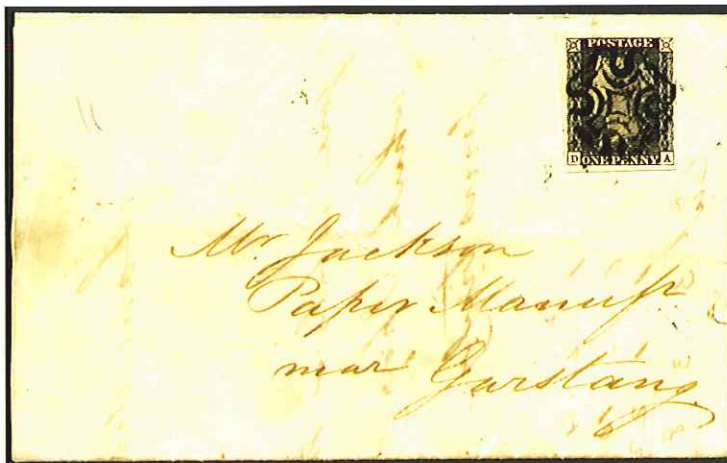 POSTAGE
D ONE PENNY A
Mr. Jackson
Paper Manufr.
near Garstang